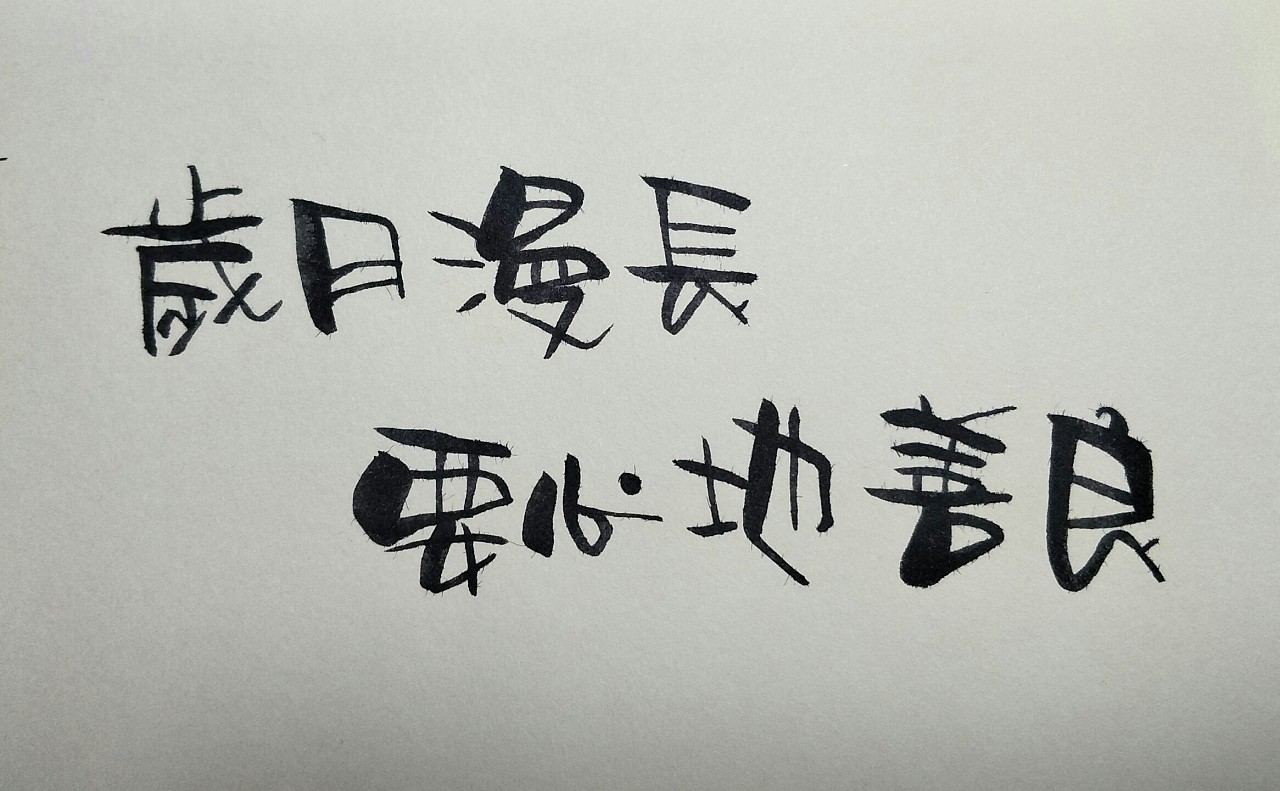 歲月漫長
要心地善良